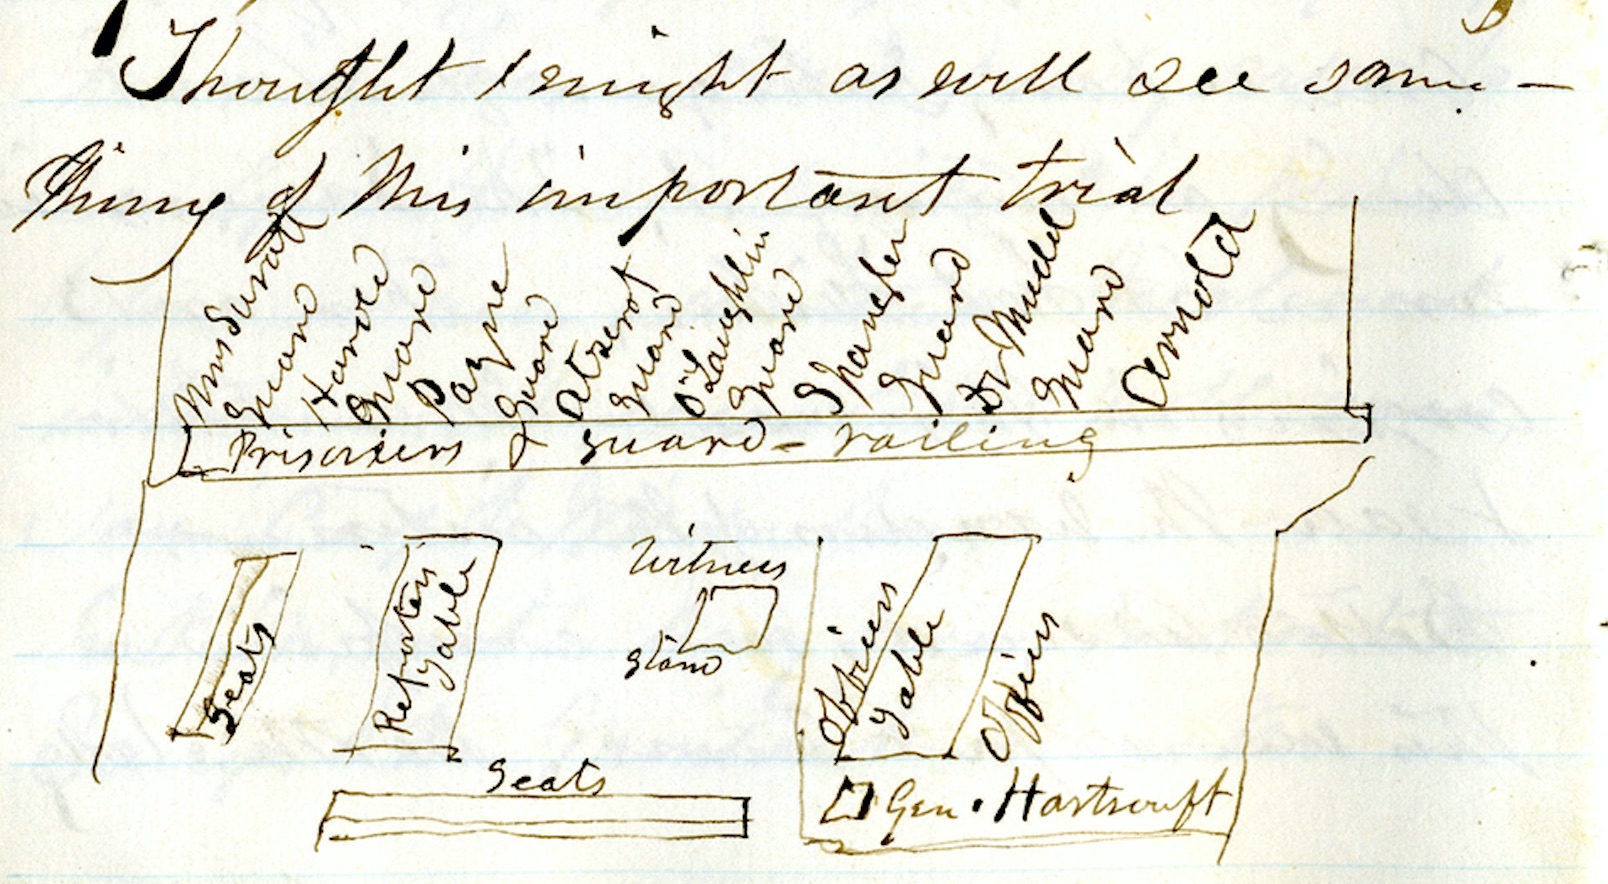 Thought I might as well see some-
thing of this important trial
Mrs Surratt
Guard
Harold
Guard
Payne
Guard
Atzerot
Guard
O'Laughlin
Guard
Spangler
Guard
Dr Mudd
Guard
Arnold
Prisoners & guard-railing
Seats
Reporters
Table
Witness
Stand
Officers
Table
Officers
Seats
Gen. Hartsruft